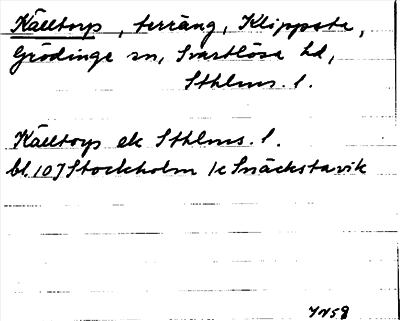 Källtorp, terräng, Klippsta,
Grödinge sn, Svartlösa hd,
Sthlms. l.
Källtorp ek Sthlms. l.
bl. 107 Stockholm /c Snäckstavik